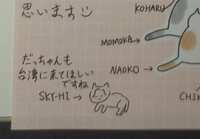 思います
KOHARU
MOMOKA
だっちゃんも
台湾に来てほしい
ですね
NAOKO
SKY-HI